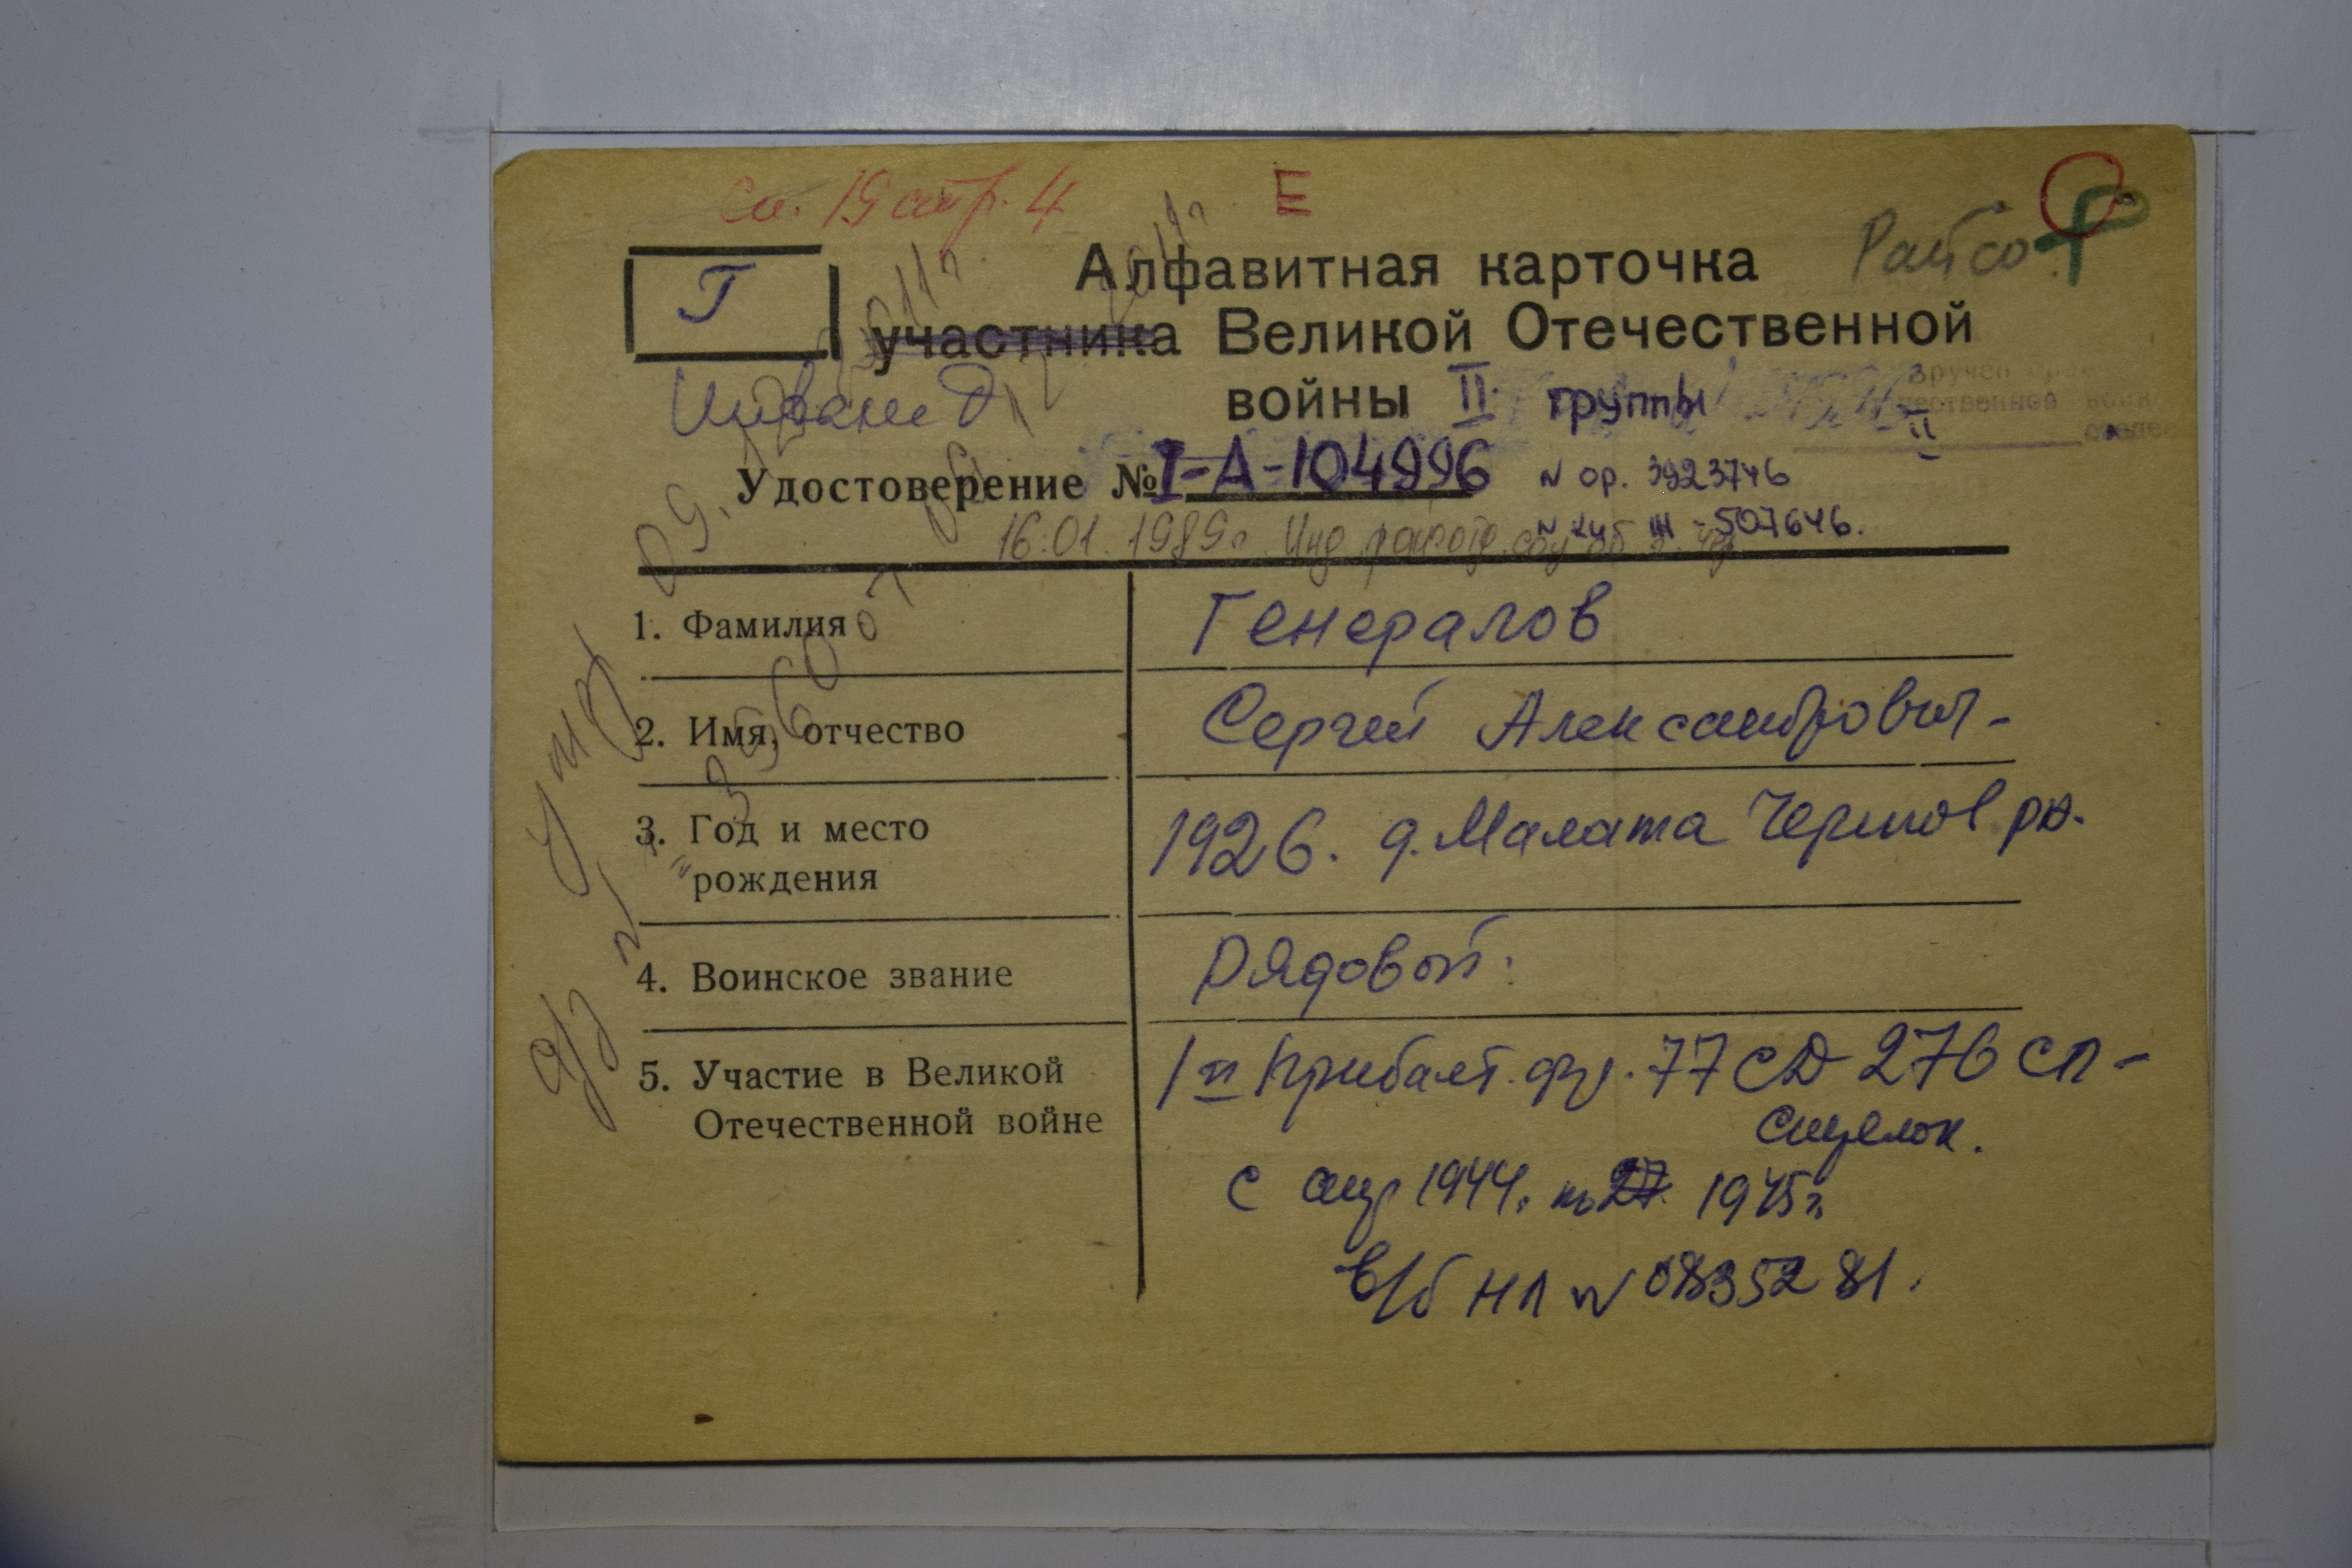 Сп. 19 стр. 4
Е
Райсо
Г
Алфавитная карточка
участника Великой Отечественной
Инвалид
войны II группы
Вручен
отечественной войны
II
Удостоверение № I-А-104996
N ор. 3923746
N 507646.
16.01.1989г. Инд.
1. Фамилия
Генералов
2. Имя, отчество
Сергей Александрович-
3. Год и место
рождения
1926. д. Малата Чернов рн.
4. Воинское звание
Рядовой.
5. Участие в Великой
Отечественной войне
1й Прибалт. фр. 77 СД 276 сп-
Стрелок.
с апр 1944г по 27. 1945г.
в/б НЛ N 0835281.